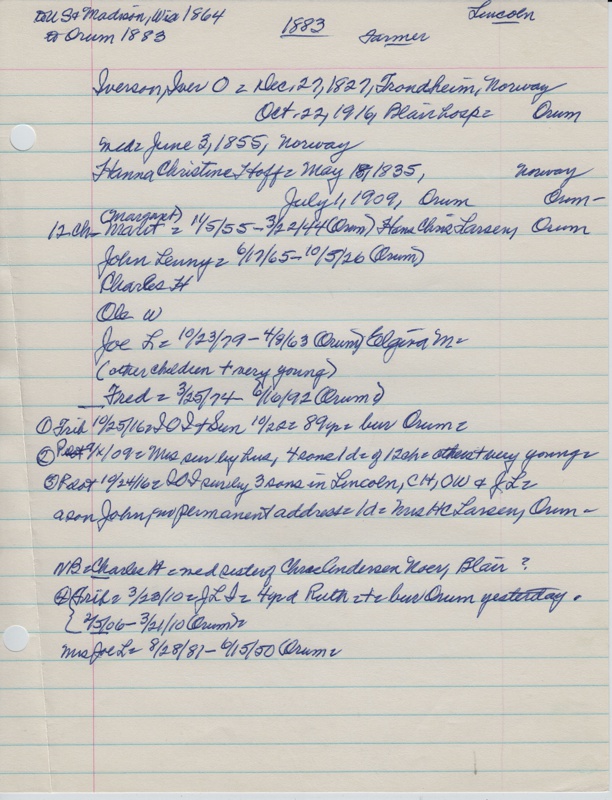 to US & Madison, Wis 1864
to Orum 1883
1883
Farmer
Lincoln
Iverson, Iver O = Dec. 27, 1827, Trondheim, Norway
Oct. 22, 1916, Blair hosp = Orum
med = June 3, 1855, Norway
Hanna Christine Hoff = May 18, 1835, Norway
July 1, 1909, Orum Orum -
(Margaret)
12 ch - Marit = 11/5/55 - 3/22/44 (Orum) Hans Chris Larsen, Orum
John Lenny = 6/17/65 - 10/5/26 (Orum)
Charles H
Ole W
Joe L = 10/23/79 - 4/8/63 (Orum) Elgina M =
(other children + very young)
Fred = 3/25/74 - 6/16/92 (Orum)
① Trib 10/25/16 = I O I + Sun 10/22 = 89 yr = bur Orum =
② Post 7/ /09 = Mrs sur by hus, 4 sons 1 d = of 12 ch = others + very young =
③ Post 10/24/16 = IOI sur by 3 sons in Lincoln, CH, OW & JL =
a son John, no permanent address = 1 d = Mrs HC Larsen, Orum -
NB = Charles H = med sister of Chras Andersen Koer, Blair ?
④ Trib = 3/23/10 = J L I = 4 yr d Ruth = + = bur Orum yesterday.
{ 3/5/06 - 3/21/10 (Orum) =
Mrs Joe L = 8/28/81 - 6/15/50 (Orum =